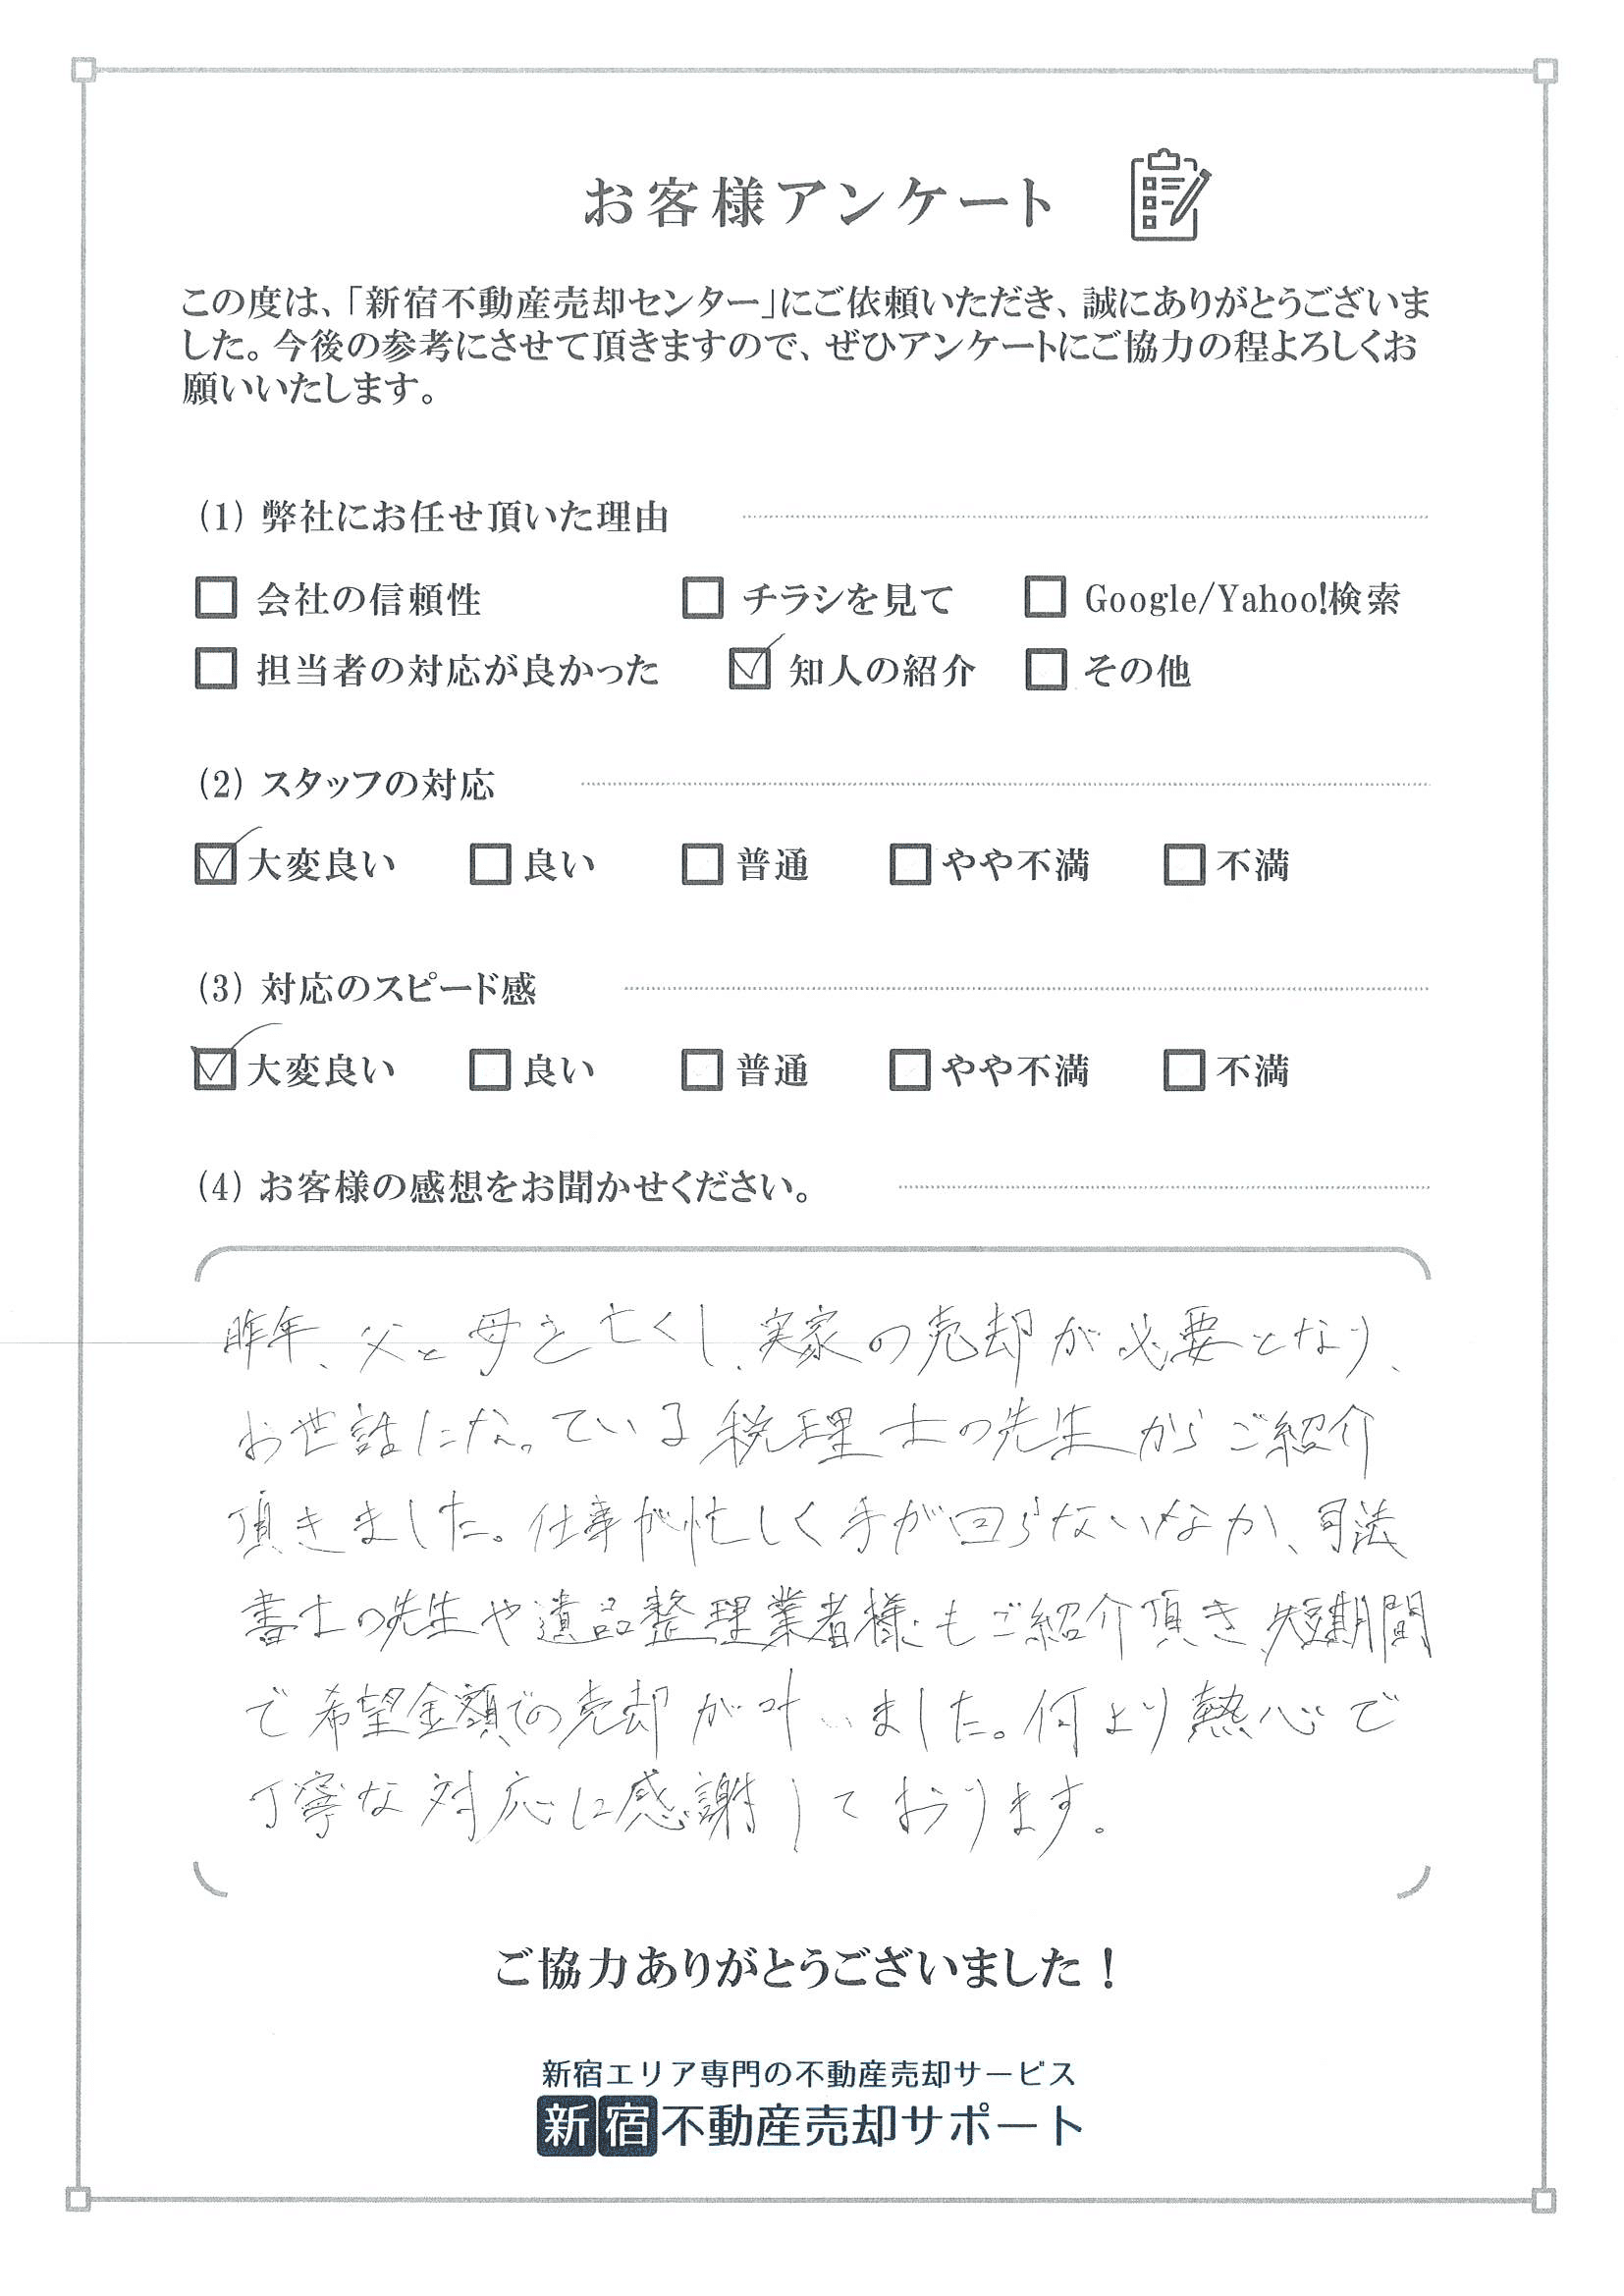 お客様アンケート
この度は、「新宿不動産売却センター」にご依頼いただき、誠にありがとうございま
した。今後の参考にさせて頂きますので、ぜひアンケートにご協力の程よろしくお
願いいたします。
(1) 弊社にお任せ頂いた理由
会社の信頼性 チラシを見て Google/Yahoo!検索
担当者の対応が良かった 知人の紹介 その他
(2) スタッフの対応
大変良い 良い 普通 やや不満 不満
(3) 対応のスピード感
大変良い 良い 普通 やや不満 不満
(4) お客様の感想をお聞かせください。
昨年、父と母を亡くし、実家の売却が必要となり、
お世話になっている税理士の先生からご紹介
頂きました。仕事が忙しく手が回らないなか、司法
書士の先生や遺品整理業者様もご紹介頂き、短期間
で希望金額での売却が叶いました。何より熱心で
丁寧な対応に感謝しております。
ご協力ありがとうございました！
新宿エリア専門の不動産売却サービス
新宿不動産売却サポート